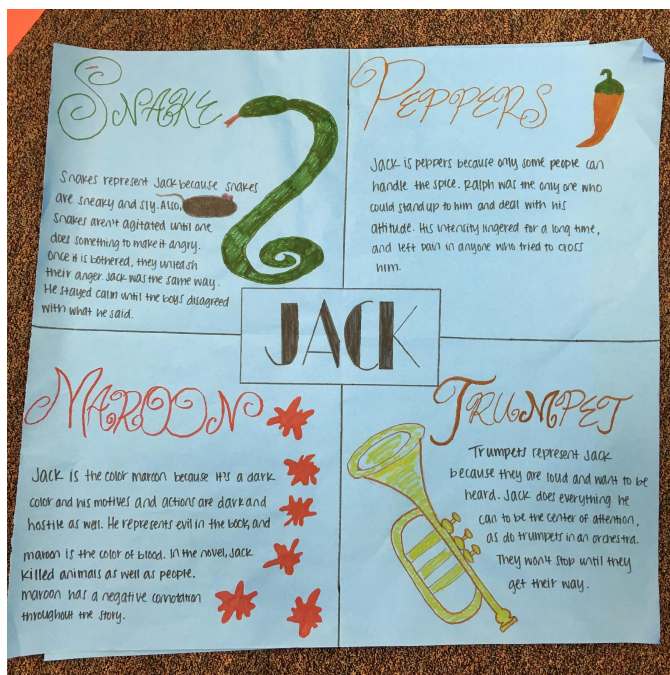 SNAKE
Snakes represent Jack because snakes
are sneaky and sly. Also,
snakes aren't agitated until one
does something to make it angry.
Once it is bothered, they unleash
their anger. Jack was the same way.
He stayed calm until the boys disagreed
with what he said.
PEPPERS
Jack is peppers because only some people can
handle the spice. Ralph was the only one who
could stand up to him and deal with his
attitude. His intensity lingered for a long time,
and left pain in anyone who tried to cross
him.
JACK
MAROON
Jack is the color maroon because it's a dark
color and his motives and actions are dark and
hostile as well. He represents evil in the book, and
maroon is the color of blood. In the novel, Jack
killed animals as well as people.
maroon has a negative connotation
throughout the story.
TRUMPET
Trumpets represent Jack
because they are loud and want to be
heard. Jack does everything he
can to be the center of attention,
as do trumpets in an orchestra.
They won't stop until they
get their way.